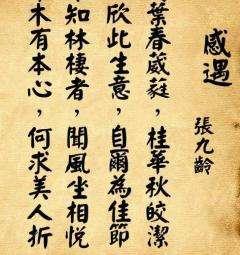 感遇
張九齡
葉春葳蕤，桂華秋皎潔
欣此生意，自爾為佳節
知林棲者，聞風坐相悅
木有本心，何求美人折